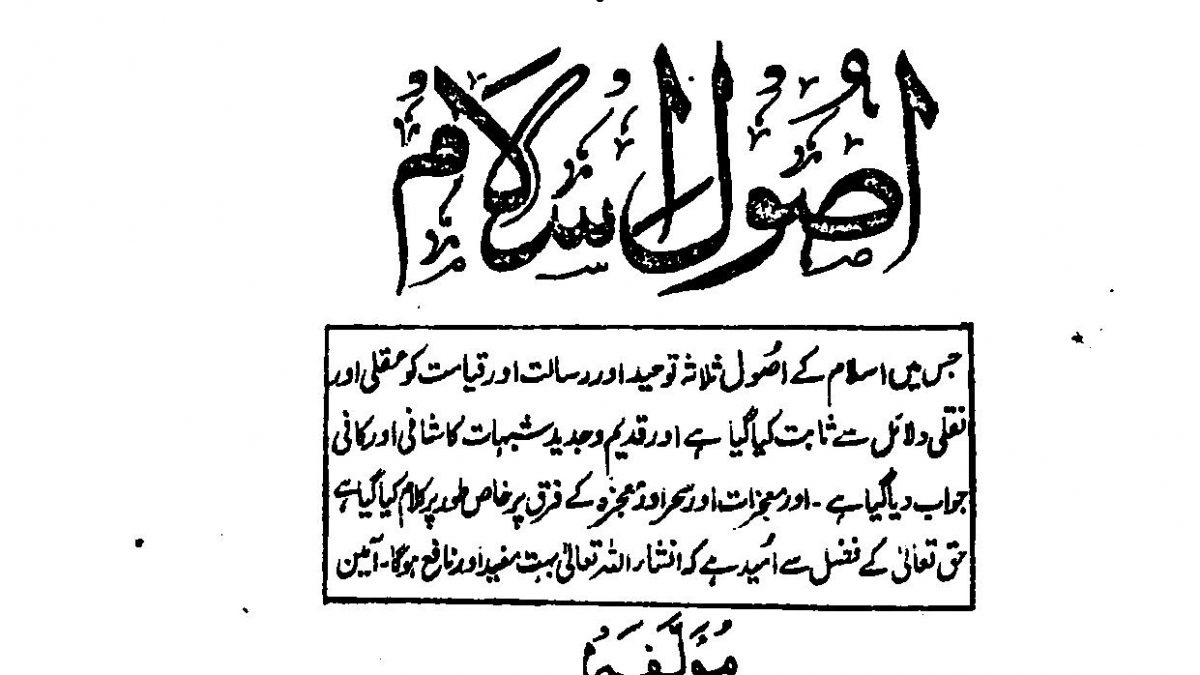 اصول اسلام
جس میں اسلام کے اصُول ثلاثہ توحید اور رسالت اور قیامت کو عقلی اور
نقلی دلائل سے ثابت کیا گیا ہے اور قدیم و جدید شبہات کا شافی اور کافی
جواب دیا گیا ہے ۔ اور معجزات اور سحر اور معجزہ کے فرق پر خاص طور پر کلام کیا گیا ہے
حق تعالیٰ کے فضل سے اُمید ہے کہ انشاء اللہ تعالیٰ بہت مفید اور نافع ہوگا ۔ آمین
مُؤلَّفہ